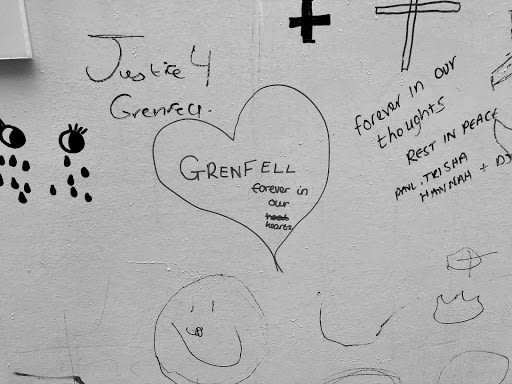 Justice 4
Grenfell.
GRENFELL
forever in
our
hearts
forever in our
thoughts
REST IN PEACE
PAUL, TRISHA
HANNAH +